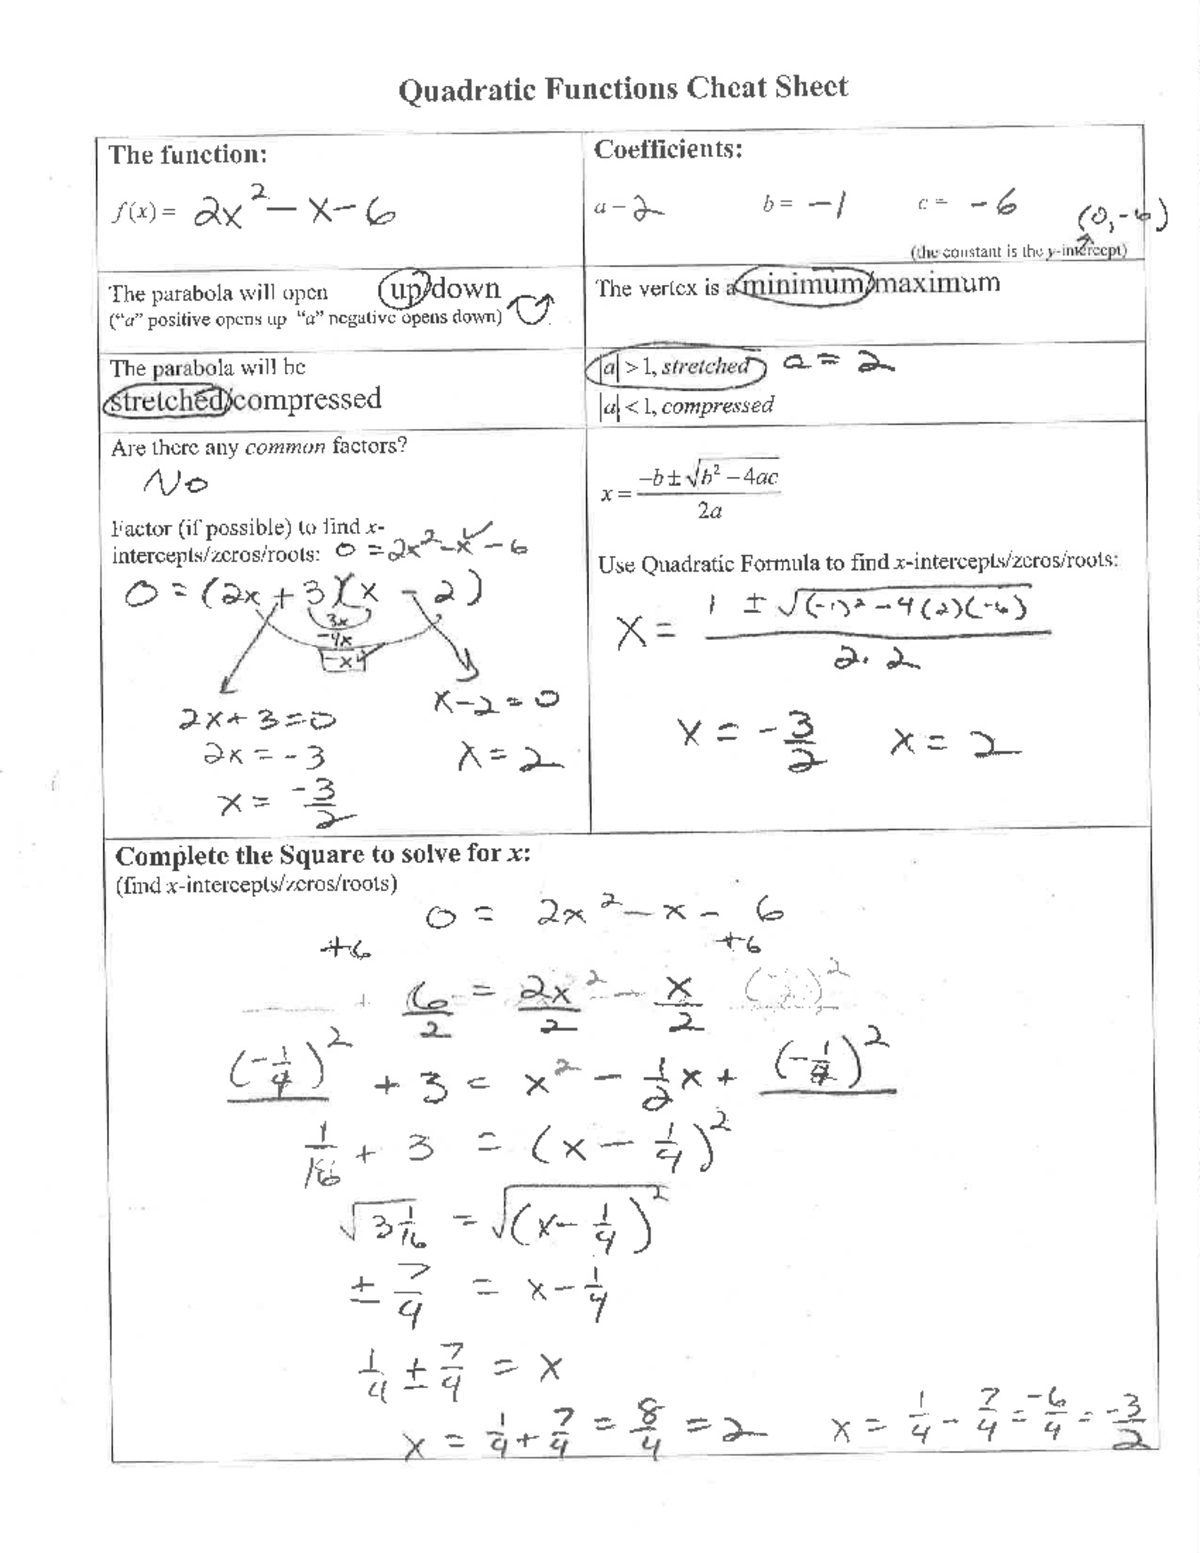 Quadratic Functions Cheat Sheet
The function:
f(x) = 2x² - x - 6
Coefficients:
a - 2 b = -1 c = -6 (0, -6)
(the constant is the y-intercept)
The parabola will open up/down
("a" positive opens up "a" negative opens down)
The vertex is a minimum/maximum
The parabola will be
stretched/compressed
|a| > 1, stretched a = 2
|a| < 1, compressed
Are there any common factors?
No
Factor (if possible) to find x-
intercepts/zeros/roots: 0 = 2x² - x - 6
0 = (2x + 3)(x - 2)
3x
-4x
-x
2x + 3 = 0
2x = -3
x = -3/2
x - 2 = 0
x = 2
x = (-b ± √(b² - 4ac)) / 2a
Use Quadratic Formula to find x-intercepts/zeros/roots:
x = (1 ± √((-1)² - 4(2)(-6))) / 2·2
x = -3/2 x = 2
Complete the Square to solve for x:
(find x-intercepts/zeros/roots)
0 = 2x² - x - 6
+6 +6
6/2 = 2x²/2 - x/2
(-1/4)² + 3 = x² - 1/2 x + (-1/4)²
1/16 + 3 = (x - 1/4)²
√(3 1/16) = √((x - 1/4)²)
± 7/4 = x - 1/4
1/4 ± 7/4 = x
x = 1/4 + 7/4 = 8/4 = 2 x = 1/4 - 7/4 = -6/4 = -3/2